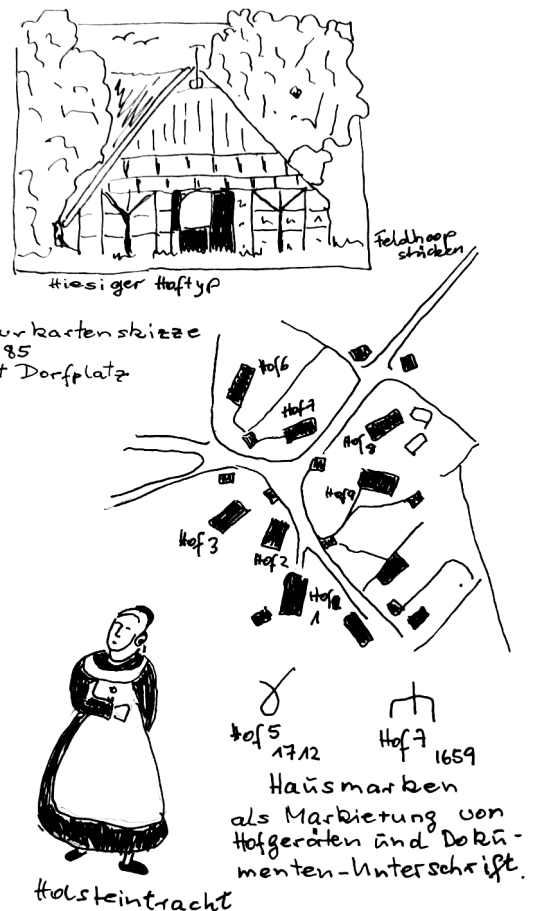 Hiesiger Hoftyp
Feldhoop
stücken
urkartenskizze
85
t Dorfplatz
Hof 6
Hof 7
Hof 8
Hof 9
Hof 3
Hof 2
Hof
1
Hof 5
1712
Hof 7
1659
Hausmarken
als Markierung von
Hofgeräten und Doku-
menten-Unterschrift.
Holsteintracht